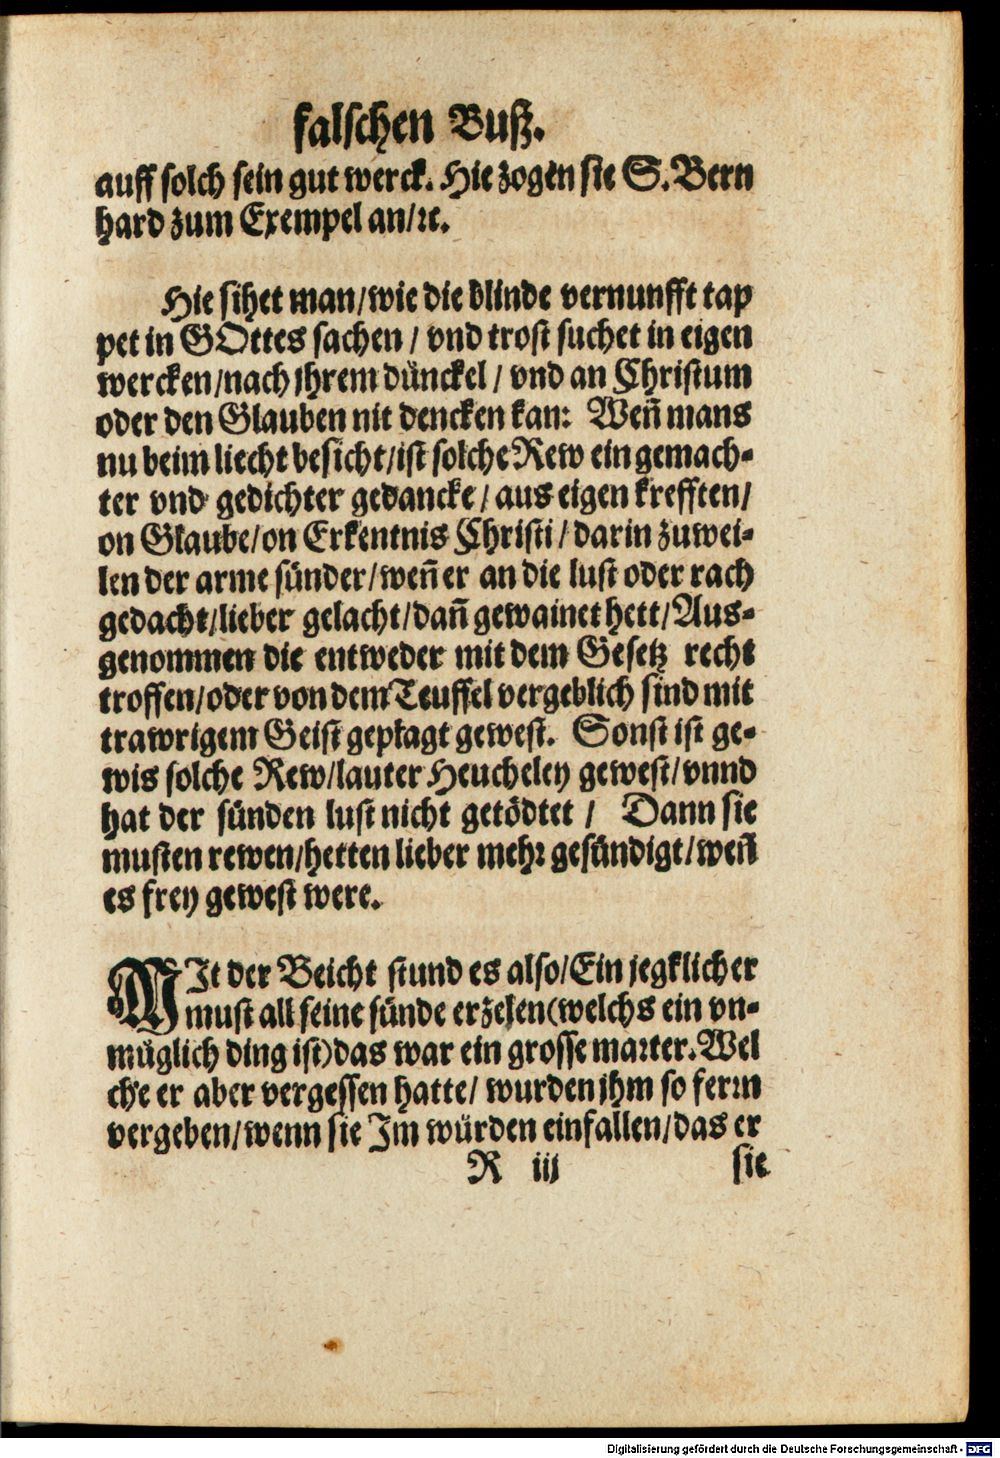 falschen Buß.
auff solch sein gut werck. Hie zogen sie S. Bern
hard zum Exempel an/ꝛc.
Hie sihet man/wie die blinde vernunfft tap
pet in GOttes sachen / vnd trost suchet in eigen
wercken/nach jhrem dünckel / vnd an Christum
oder den Glauben nit dencken kan: Weñ mans
nu beim liecht besicht/ist solche Rew ein gemach-
ter vnd gedichter gedancke / aus eigen krefften/
on Glaube/on Erkentnis Christi / darin zuwei-
len der arme sünder/weñ er an die lust oder rach
gedacht/lieber gelacht/dañ gewainet hett/Aus-
genommen die entweder mit dem Gesetz recht
troffen/oder von dem Teuffel vergeblich sind mit
trawrigem Geist geplagt gewest. Sonst ist ge-
wis solche Rew/lauter Heucheley gewest/vnnd
hat der sünden lust nicht getödtet / Dann sie
musten rewen/hetten lieber mehr gesündigt/weñ
es frey gewest were.
MIt der Beicht stund es also/Ein jegklicher
must all seine sünde erzelen(welchs ein vn-
müglich ding ist)das war ein grosse marter.Wel
che er aber vergessen hatte/ wurden jhm so fern
vergeben/wenn sie Jm würden einfallen/das er
R iij sie
Digitalisierung gefördert durch die Deutsche Forschungsgemeinschaft - DFG